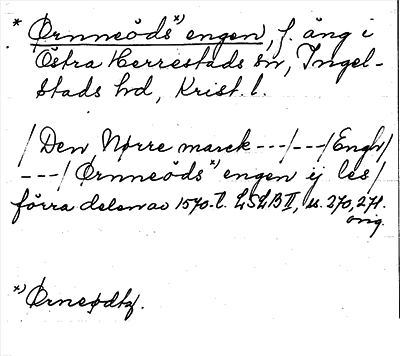 * Ørnneöds*) engen, f. äng i
Östra Herrestads sn, Ingel-
stads hd, Krist. l.
/ Den Nørre marck ---/---/Engh/
---/ Ørnneöds*) engen ej les /
förra delen av 1570-t. LSLB II, s. 270, 271.
orig.
*) Ørneødtz.